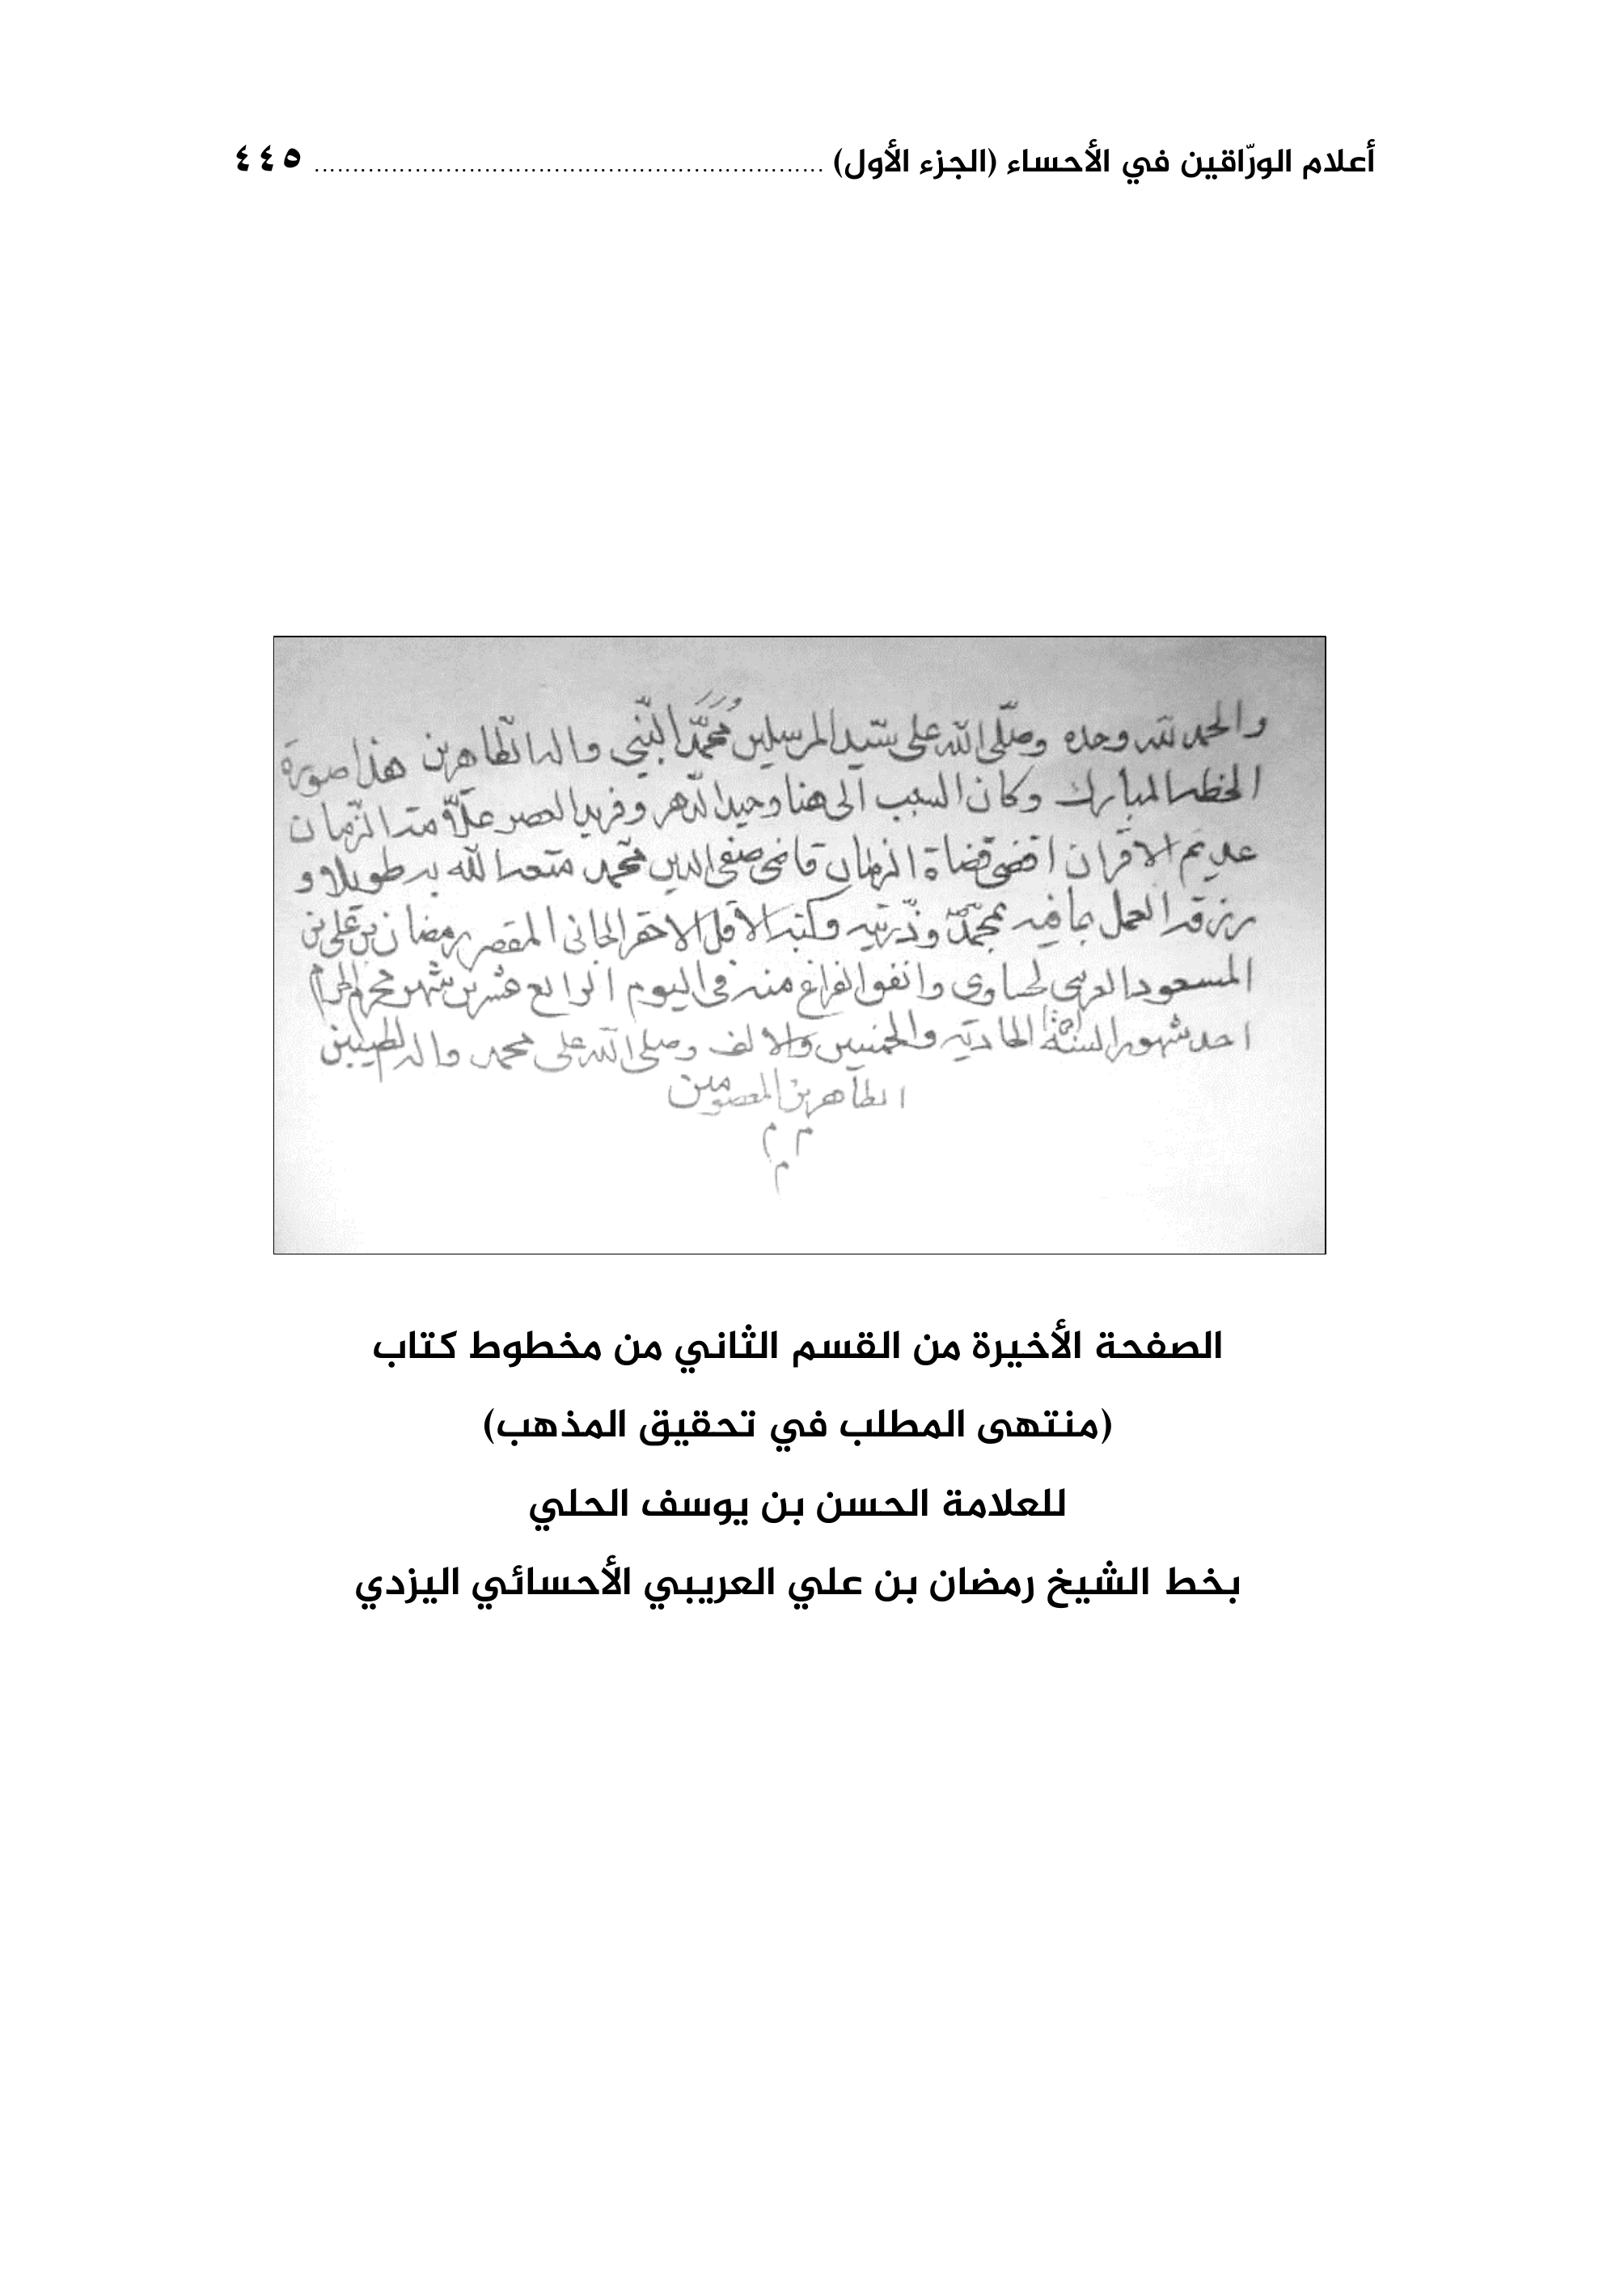 أعلام الورّاقين في الأحساء (الجزء الأول) ................................................................ ٤٤٥
والحمد لله وحده وصلّى الله على سيّد المرسلين مُحَمَّد النّبي واله الطاهرين هذا صورة
الخطه المبارك وكان السبب الى هنا وحيد الدّهر وفريد العصر علاّمة الزّمان
عديم الاقران اقضى قضاة الزمان قاضى صفى الدين محمد متعه الله به طويلا و
رزقه العمل بما فيه بمحمّد وذرّيته وكتبه الاقل الاحقر الجانى المقصر رمضان بن على بن
المسعود العربى لحساوى واتفق الفراغ منه فى اليوم الرابع عشر من شهر محرم الحرام
احد شهور السنة الحاديه والخمسين والالف وصلى الله على محمد واله الطيبين
الطاهرين المعصومين
م م
م
الصفحة الأخيرة من القسم الثاني من مخطوط كتاب
(منتهى المطلب في تحقيق المذهب)
للعلامة الحسن بن يوسف الحلي
بخط الشيخ رمضان بن علي العريبي الأحسائي اليزدي